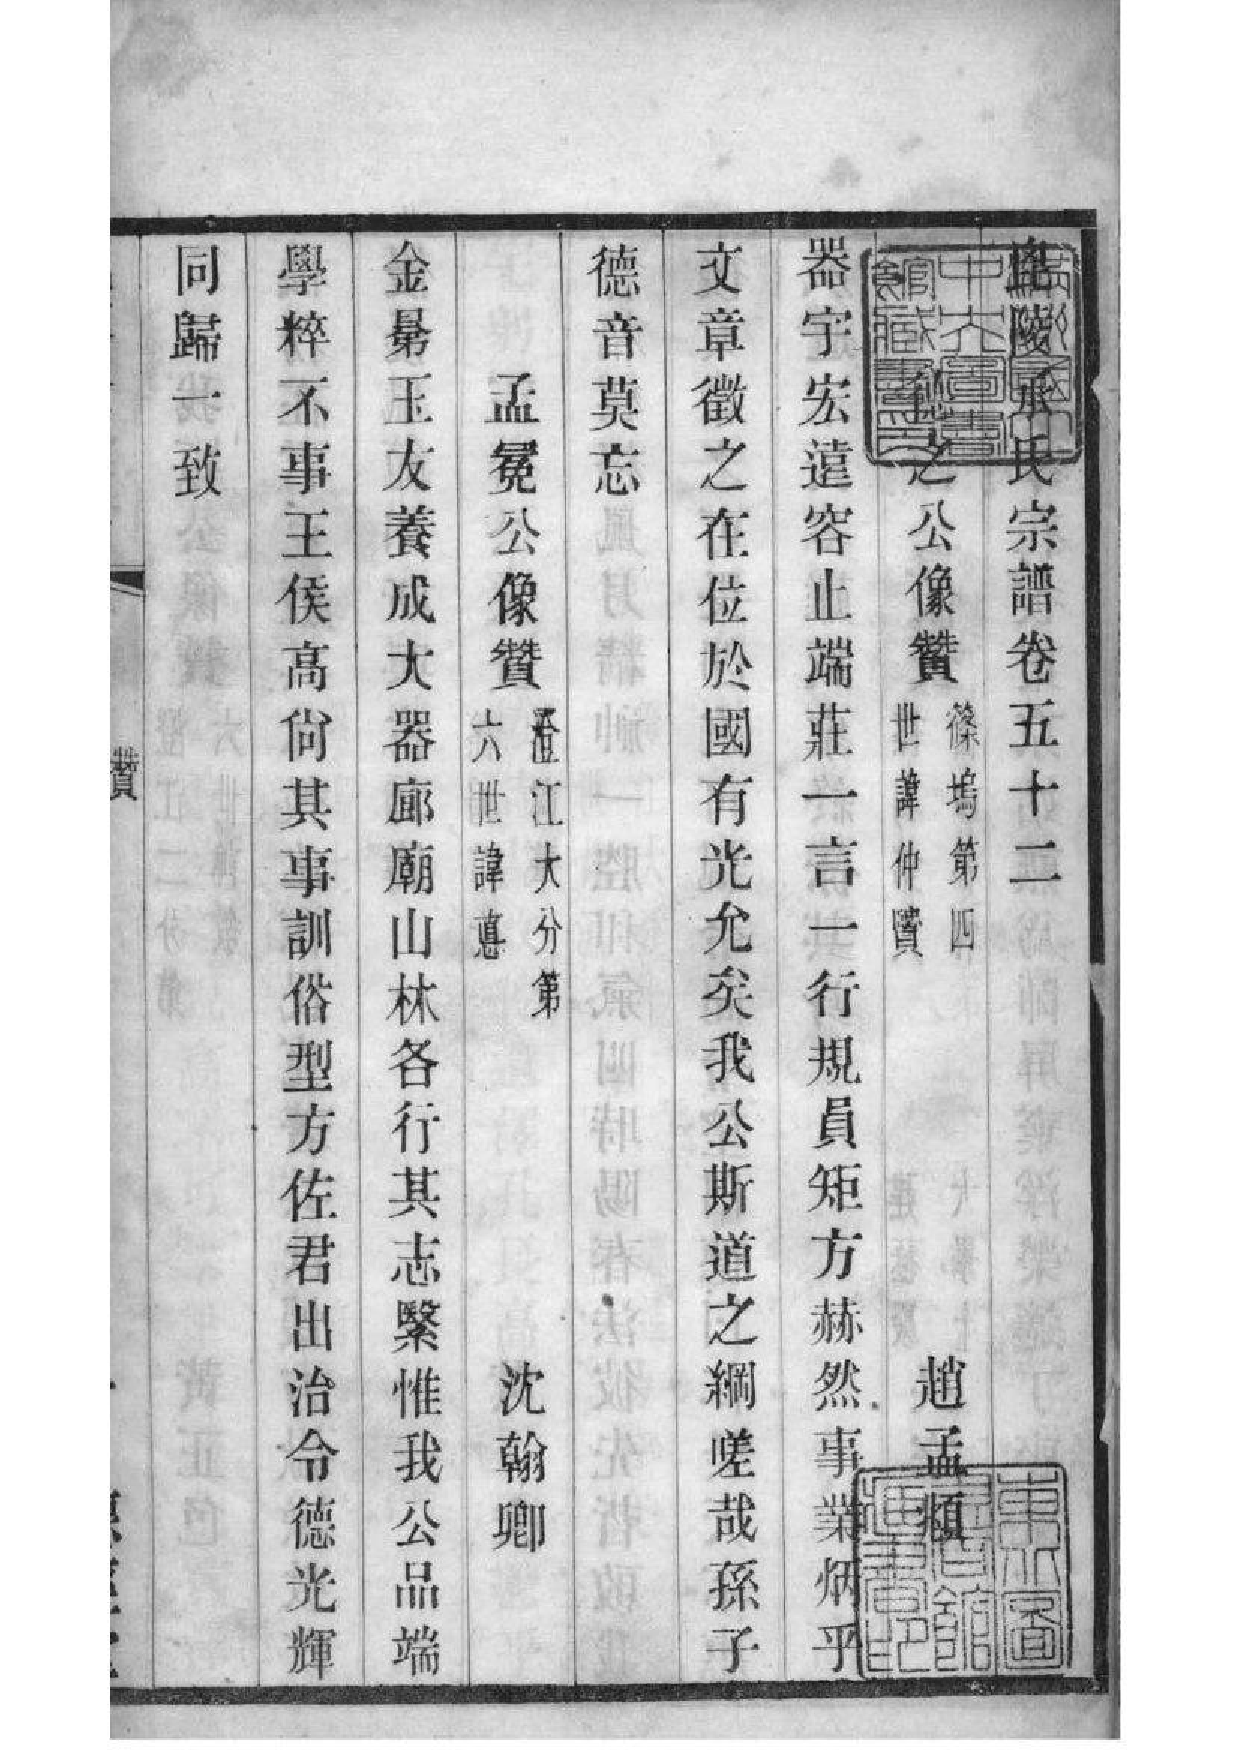 毘陵承氏宗譜卷五十二
之公像贊 篠塢第四世諱仲賾 趙孟頫
器宇宏遠容止端莊一言一行規員矩方赫然事業炳乎
文章徵之在位於國有光允矣我公斯道之綱嗟哉孫子
德音莫忘
孟冕公像贊 澄江大分第六世諱 沈翰卿
金昜玉友養成大器廊廟山林各行其志繄惟我公品端
學粹不事王侯高尙其事訓俗型方佐君出治令德光輝
同歸一致
贊